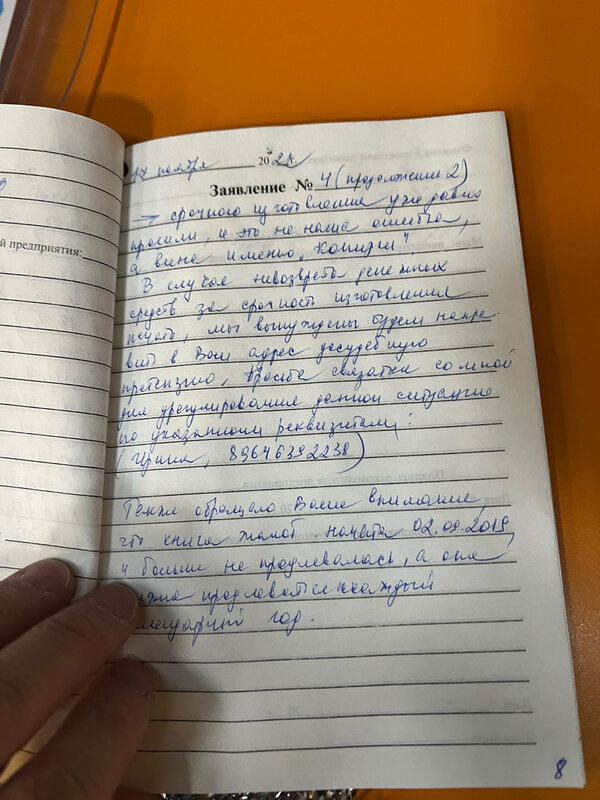 й предприятия:
17 ноября 2021
Заявление № 4 (продолжение 2)
→ срочного изготовления уже давно
просили, и это не наша ошибка,
а вина именно, Копирки".
В случае невозврата денежных
средств за срочность изготовления
печати, мы вынуждены будем напра-
вить в Ваш адрес досудебную
претензию, просьба связаться со мной
для урегулирования данной ситуации
по указанным реквизитам:
(Ирина, 89646392238)
Также обращаю Ваше внимание,
что книга жалоб начата 02.09.2019,
и больше не продлевалась, а она
жна продлеваться каждый
лендарный год.
8